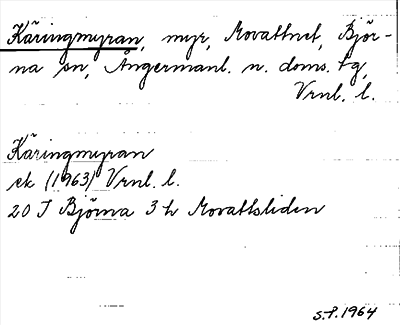 Käringmyran, myr, Movattnet, Björ-
na sn, Ångermanl. n. doms. tg,
Vrnl. l.
Käringmyran
ek (1963) Vrnl. l.
20 J Björna 3 h Movattsliden
S.P. 1964